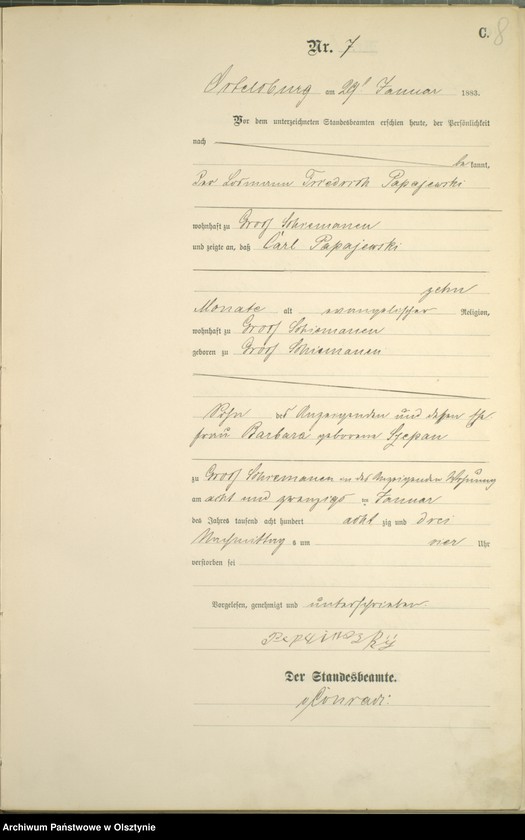 C. 8
Nr. 7
Ortelsburg am 29t Januar 1883.
Vor dem unterzeichneten Standesbeamten erschien heute, der Persönlichkeit
nach
be kannt,
Der Losmann Friedrich Papajewski
wohnhaft zu Groß Schiemanen
und zeigte an, daß Carl Papajewski
zehn
Monate alt evangelischer Religion,
wohnhaft zu Groß Schiemanen
geboren zu Groß Schiemanen
Sohn des Anzeigenden und dessen Ehe
frau Barbara geborene Czepan
zu Groß Schiemanen in des Anzeigenden Wohnung
am acht und zwanzigs ten Januar
des Jahres tausend acht hundert acht zig und drei
Nachmittag s um vier Uhr
verstorben sei
Vorgelesen, genehmigt und unterschrieben
Der Standesbeamte.
Conradi.
Archiwum Państwowe w Olsztynie